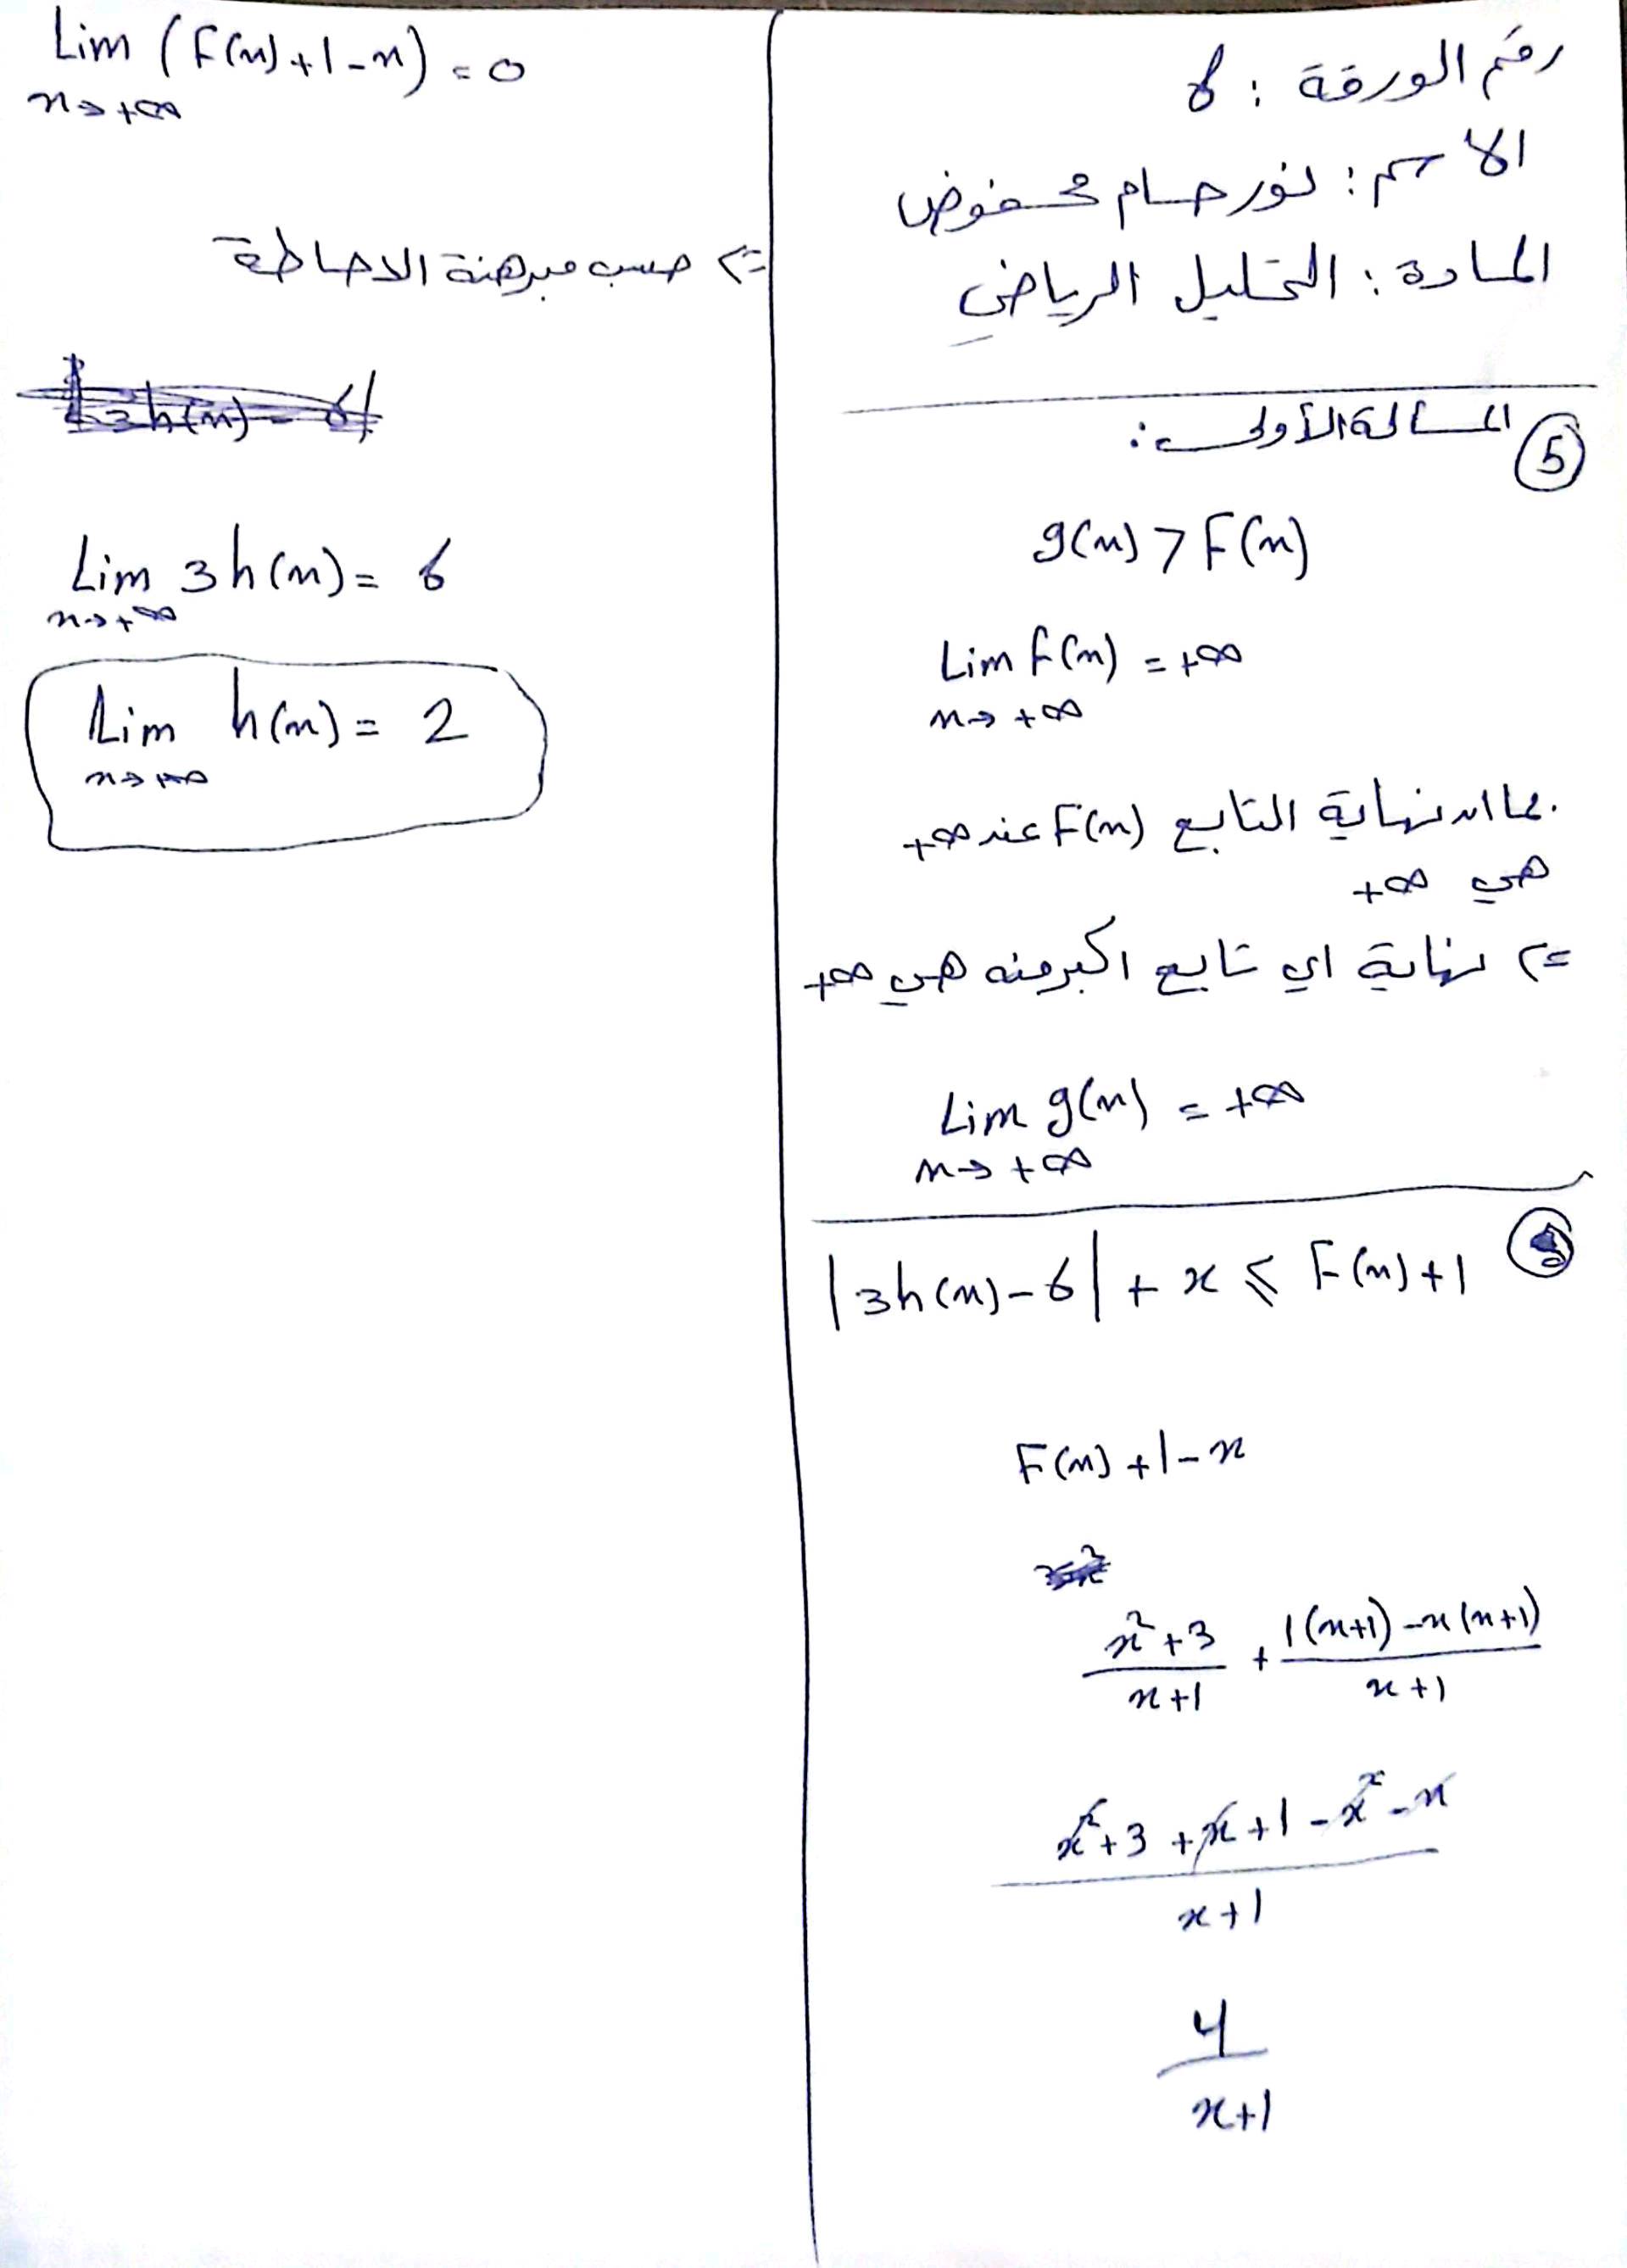 رقم الورقة : 6
الاسم : نور حسام محفوض
المادة : التحليل الرياضي
5 المسالة الأولى :
g(x) > F(x)
Lim f(x) = +∞
x→ +∞
بما ان نهاية التابع F(x) عند ∞+
هي ∞+
=> نهاية اي تابع اكبر منه هي ∞+
Lim g(x) = +∞
x→ +∞
|3h(x)-6| + x ⩽ F(x)+1
F(x)+1-x
x²+3 / x+1 + 1(x+1)-x(x+1) / x+1
x²+3+x+1-x²-x / x+1
4 / x+1
Lim (F(x)+1-x) = 0
x→+∞
=> حسب مبرهنة الاحاطة
Lim 3h(x) = 6
x→+∞
Lim h(x) = 2
x→+∞